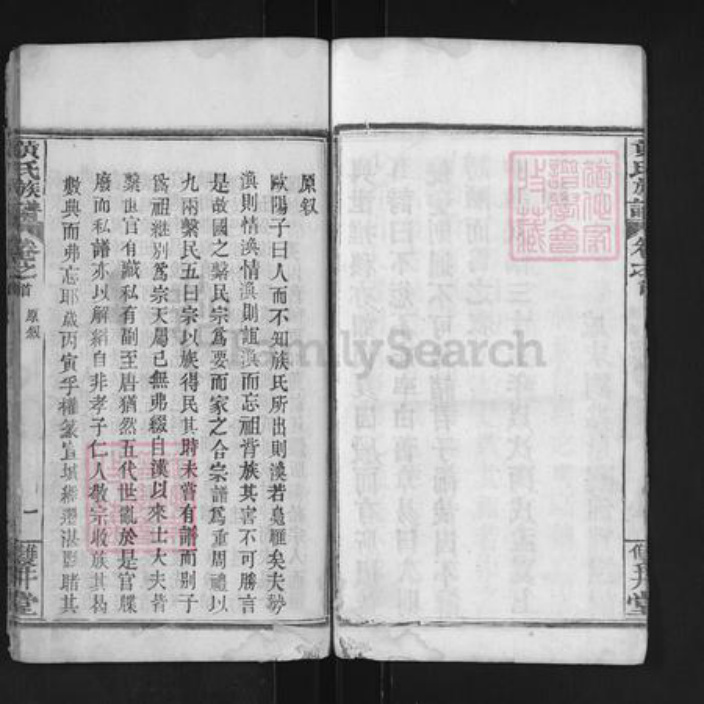 原叙
歐陽子曰人而不知族氏所出則渙若鳧雁矣夫勢
渙則情渙情渙則誼渙而忘祖背族其害不可勝言
是故國之繫民宗爲要而家之合宗譜爲重周禮以
九兩繫民五曰宗以族得民其時未嘗有譜而別子
爲祖繼別爲宗天屬已無弗綴自漢以來士大夫皆
繫世官有藏私有副至唐猶然五代世亂於是官牒
廢而私譜亦以解紐自非孝子仁人敬宗收族其曷
敷典而弗忘耶歲丙寅予權篆宜
黄氏族譜
卷之首
原叙
一
雙井堂
FamilySearch